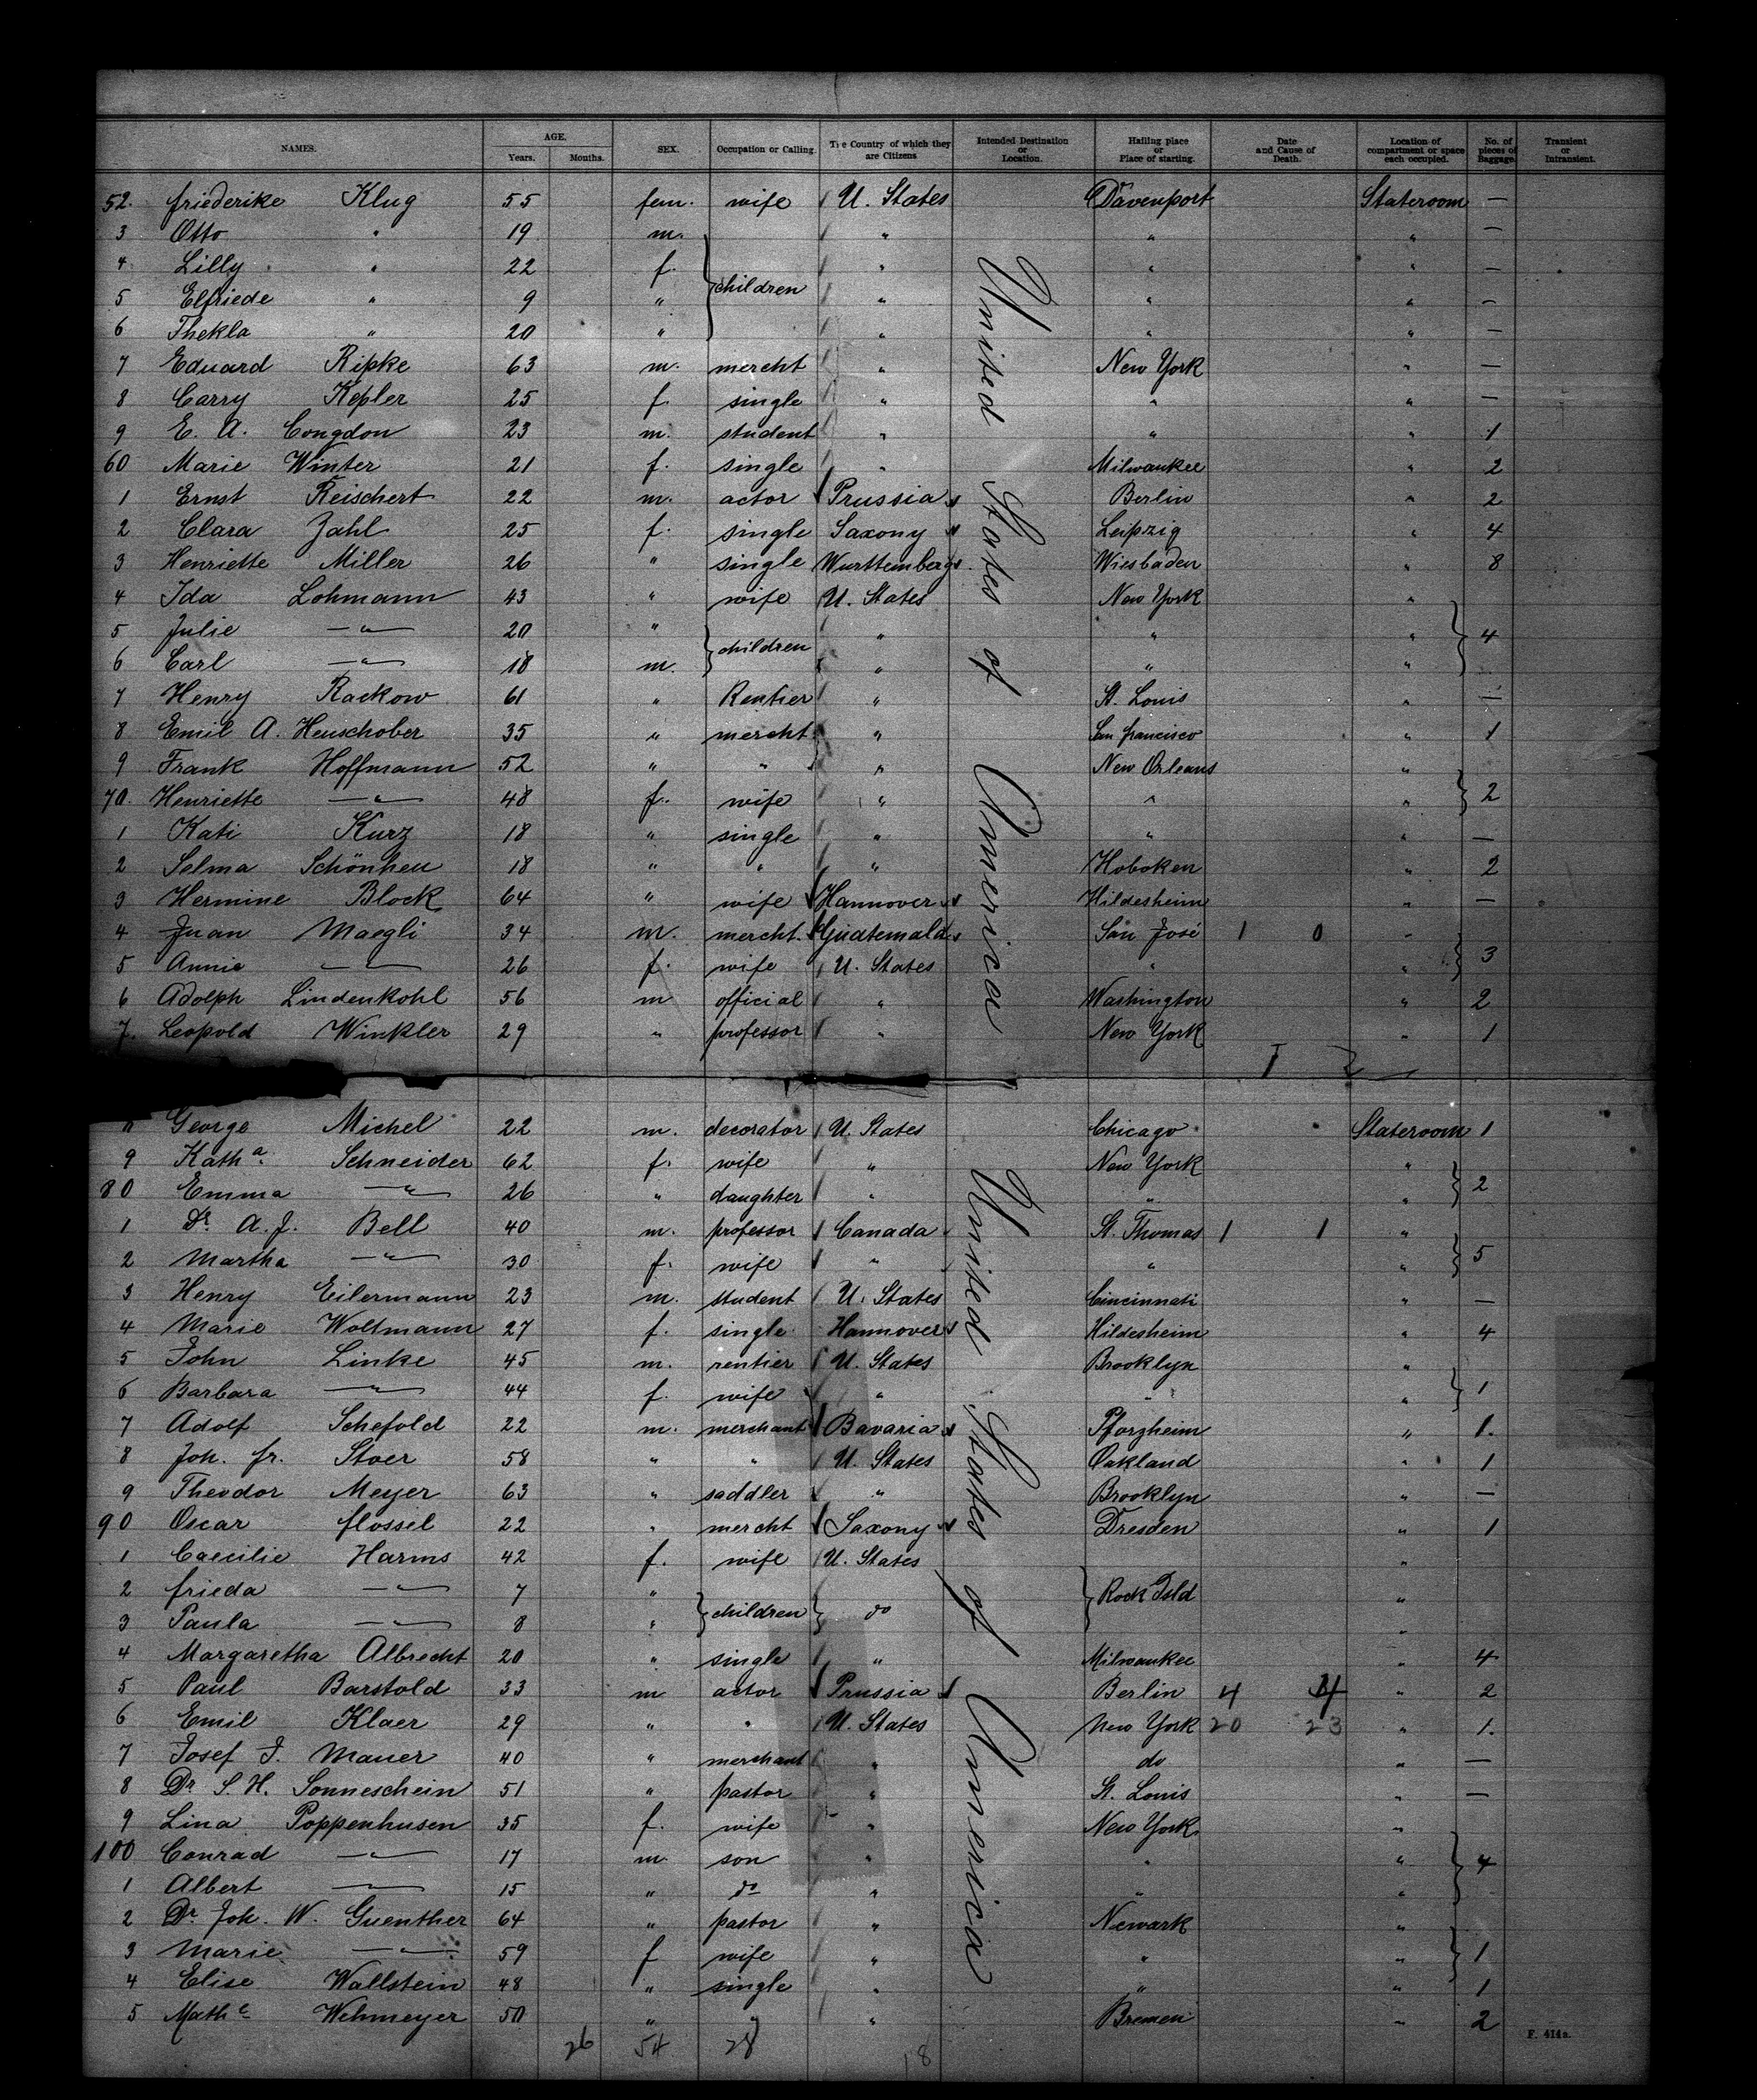 NAMES. AGE. Years. Months. SEX. Occupation or Calling. The Country of which they are Citizens Intended Destination or Location. Hailing place or Place of starting. Date and Cause of Death. Location of compartment or space each occupied. No. of pieces of Baggage. Transient or Intransient.
52. friederike Klug 55 fem. wife U. States Davenport Stateroom —
3 Otto " 19 m. " " " —
4 Lilly " 22 f. children " " " —
5 Elfriede " 9 " " " " —
6 Thekla " 20 " " " " —
7 Eduard Ripke 63 m. mercht " New York " —
8 Carry Kepler 25 f. single " " " —
9 E. A. Congdon 23 m. student " " " 1
60 Marie Winter 21 f. single " Milwaukee " 2
1 Ernst Reischert 22 m. actor Prussia Berlin " 2
2 Clara Zahl 25 f. single Saxony Leipzig " 4
3 Henriette Miller 26 " single Wurttemberg Wiesbaden " 8
4 Ida Lohmann 43 " wife U. States New York "
5 Julie —"— 20 " children " " " 4
6 Carl —"— 18 m. " " "
7 Henry Rackow 61 " Rentier " St. Louis " —
8 Emil A. Heuschober 35 " mercht " San francisco " 1
9 Frank Hoffmann 52 " " " New Orleans "
70. Henriette —"— 48 f. wife " " " 2
1 Kati Kurz 18 " single " " " —
2 Selma Schönheu 18 " " " Hoboken " 2
3 Hermine Block 64 " wife Hannover Hildesheim " —
4 Juan Maegli 34 m. mercht. Guatemala San José 1 0 "
5 Annie —"— 26 f. wife U. States " " 3
6 Adolph Lindenkohl 56 m official " Washington " 2
7. Leopold Winkler 29 " professor " New York " 1
George Michel 22 m. decorator U. States Chicago Stateroom 1
9 Kath.a Schneider 62 f. wife " New York "
80 Emma —"— 26 " daughter " " " 2
1 Dr. A. J. Bell 40 m. professor Canada St. Thomas 1 1 "
2 Martha —"— 30 f. wife " " " 5
3 Henry Eilermann 23 m. student U. States Cincinnati " —
4 Marie Woltmann 27 f. single Hannover Hildesheim " 4
5 John Linke 45 m. rentier U. States Brooklyn "
6 Barbara —"— 44 f. wife " " " 1
7 Adolf Schefold 22 m. merchant Bavaria Pforzheim " 1.
8 Joh. fr. Stoer 58 " " U. States Oakland " 1
9 Theodor Meyer 63 " saddler " Brooklyn " —
90 Oscar flossel 22 " mercht Saxony Dresden " 1
1 Caecilie Harms 42 f. wife U. States "
2 frieda —"— 7 " children do Rock Isld "
3 Paula —"— 8 " "
4 Margaretha Albrecht 20 " single " Milwaukee " 4
5 Paul Barstold 33 m actor Prussia Berlin 4 4 " 2
6 Emil Klaer 29 " " U. States New York 20 23 " 1.
7 Josef J. Mauer 40 " merchant " do " —
8 Dr S. H. Sonneschein 51 " pastor " St. Louis " —
9 Lina Poppenhusen 35 f. wife " New York "
100 Conrad —"— 17 m. son " " " 4
1 Albert —"— 15 " do " " "
2 Dr Joh. W. Guenther 64 " pastor " Newark "
3 Marie —"— 59 f wife " " " 1
4 Elise Wallstein 48 " single " " " 1
5 Math.e Wehmeyer 50 " " " Bremen " 2
26 54 28 18
United States of America
United States of America
F. 414a.